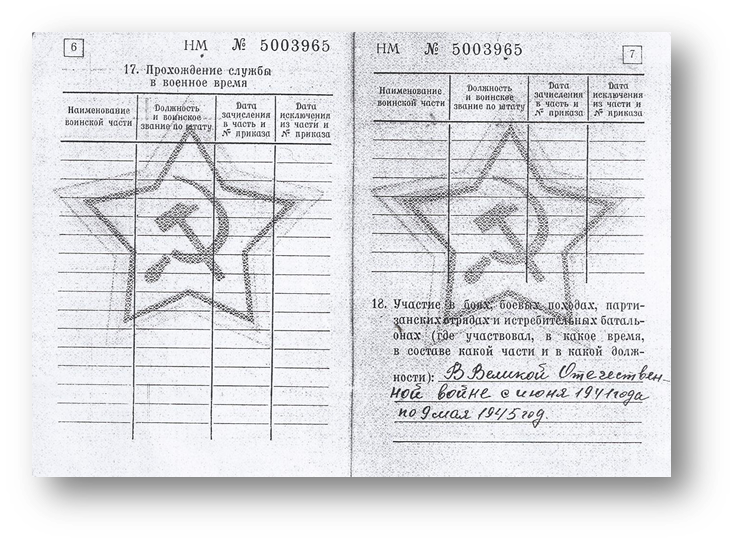 6
НМ № 5003965
17. Прохождение службы
в военное время
Наименование воинской части
Должность и воинское звание по штату
Дата зачисления в часть и № приказа
Дата исключения из части и № приказа
НМ № 5003965
7
Наименование воинской части
Должность и воинское звание по штату
Дата зачисления в часть и № приказа
Дата исключения из части и № приказа
18. Участие в боях, боевых походах, парти-
занских отрядах и истребительных баталь-
онах (где участвовал, в какое время,
в составе какой части и в какой долж-
ности): В Великой Отечествен-
ной войне с июня 1941 года
по 9 мая 1945 год.